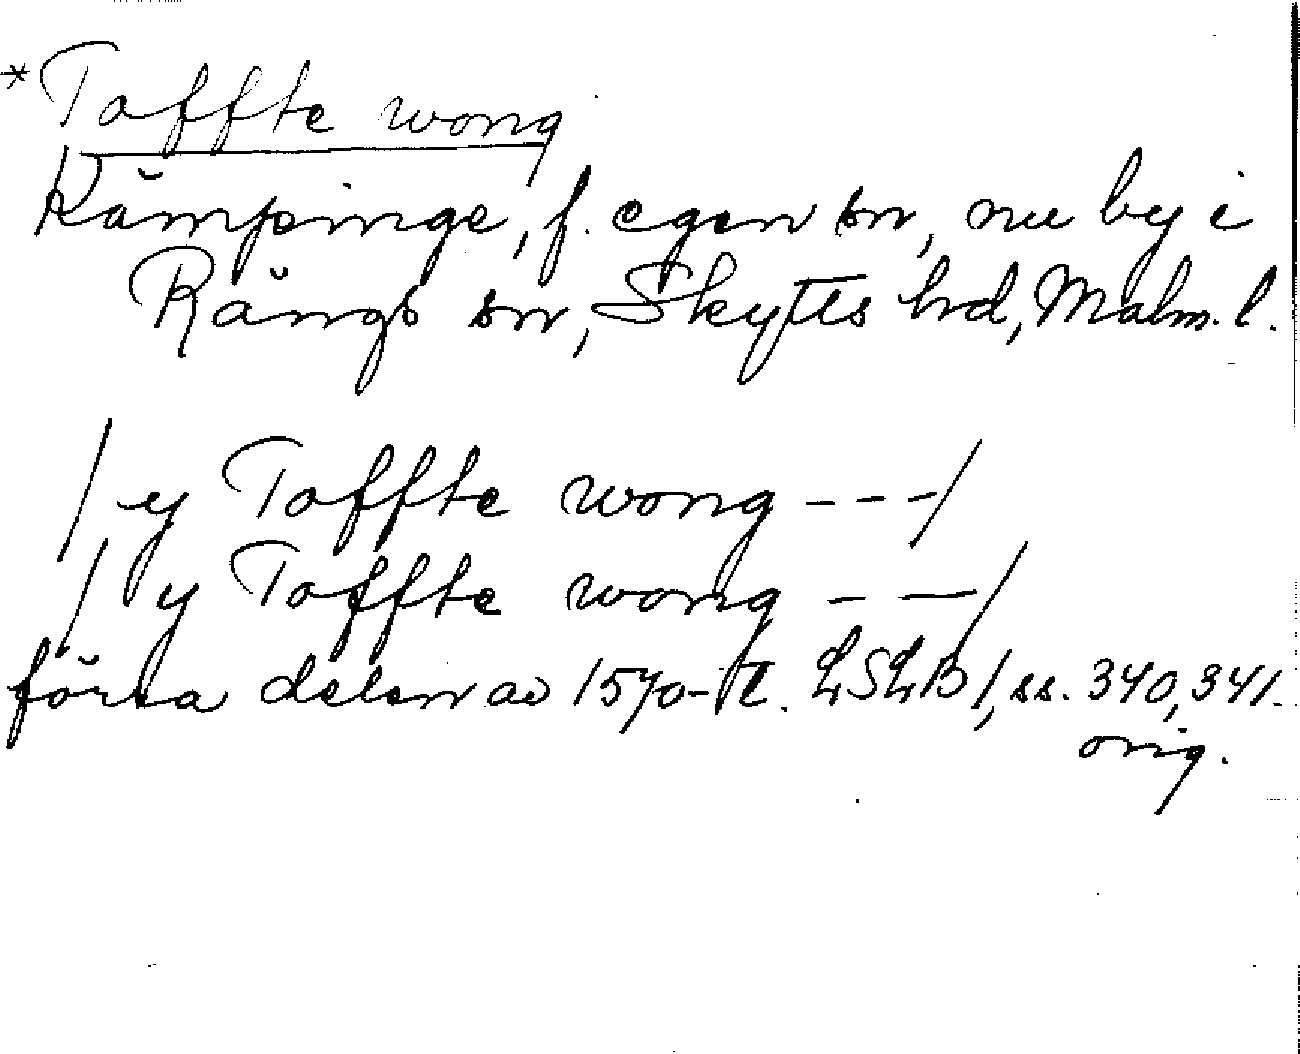 *Toffte wong
Kämpinge, f. egen sn, nu by i
Rängs sn, Skytts hd, Malm. l.
/ y Toffte wong --- /
/ y Toffte wong -- /
förra delen av 1570-t. LSLB 1, ss. 340, 341.
orig.